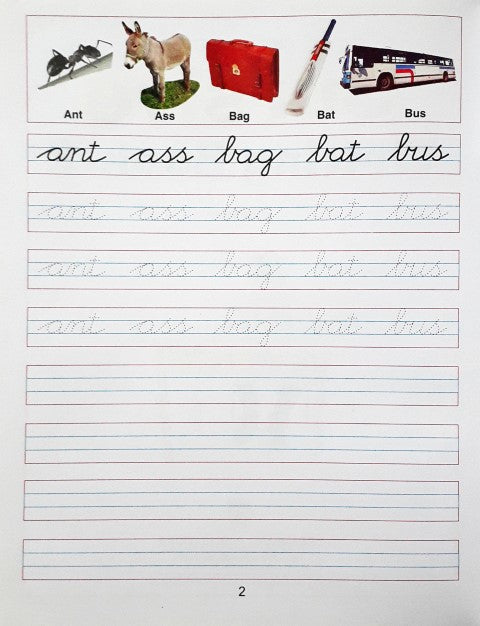 Ant Ass Bag Bat Bus
ant ass bag bat bus
ant ass bag bat bus
ant ass bag bat bus
ant ass bag bat bus
2